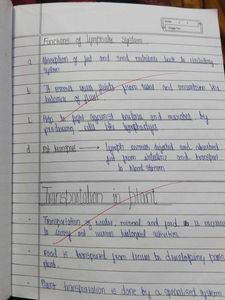 Functions of lymphatic system
a. Absorption of fat and send nutrition back to circulatory
system
b. It removes extra fluids from tissue and maintains the
balance of fluid
c. Help to fight against bacteria and microbes by
producing cells like lymphocytes
d. Fat transport → lymph carries digested and absorbed
fat from intestine and transport
to blood stream
Transportation in plant
Transportation of water, mineral and food is necessary
to carry out various biological activities
Food is transported from leaves to developing parts
plant.
Plant transportation is done by a specialised system